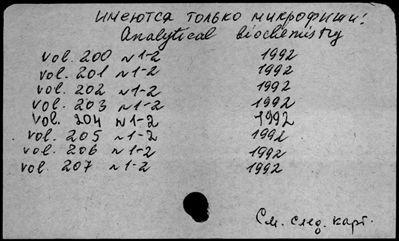 имеются только микрофиши!
Analytical biochemistry
vol. 200 N 1-2 1992
vol. 201 N 1-2 1992
vol. 202 N 1-2 1992
vol. 203 N 1-2 1992
vol. 204 N 1-2 1992
vol. 205 N 1-2 1992
vol. 206 N 1-2 1992
vol. 207 N 1-2 1992
См. след. карт.